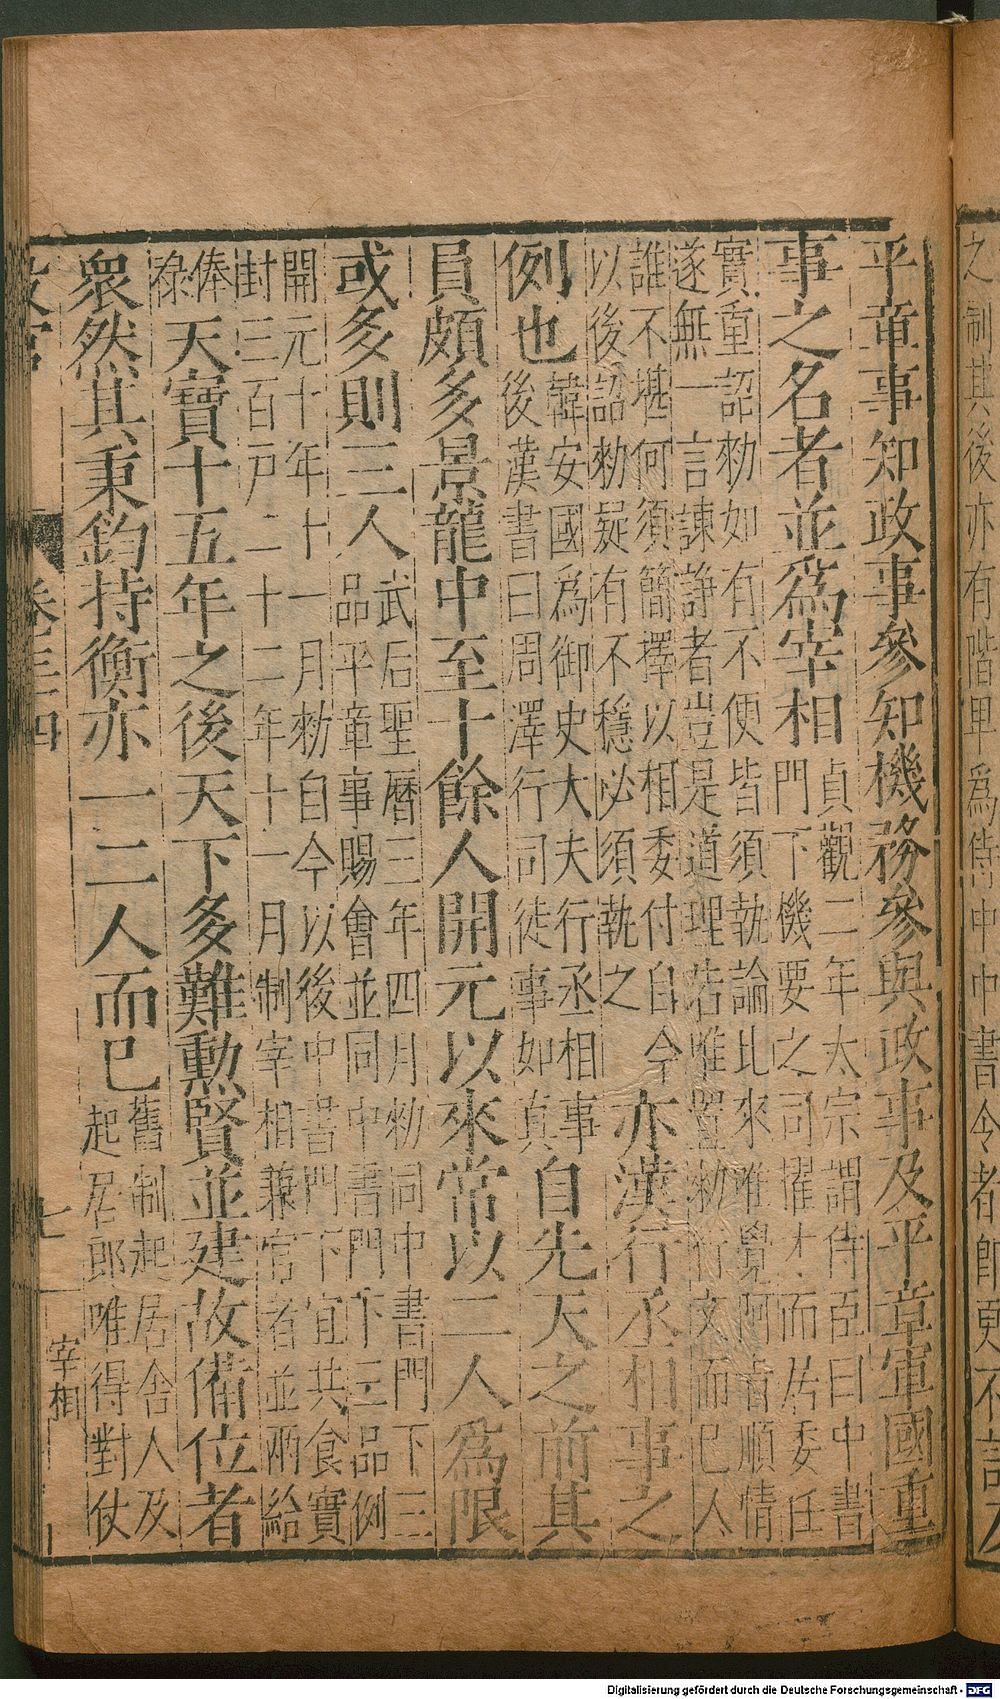 平章事知政事參知機務參與政事及平章軍國重
事之名者並爲宰相
貞觀二年太宗謂侍臣曰中書
門下機要之司擢才而居委任
實重詔勑如有不便皆須執論比來唯覺阿旨順情
遂無一言諫諍者豈是道理若惟置勑行文而已人
誰不堪何須簡擇以相委付自今
以後詔勑疑有不穩必須執之
亦漢行丞相事之
例也
韓安國爲御史大夫行丞相事
後漢書曰周澤行司徒事如真
自先天之前其
員頗多景龍中至十餘人開元以來常以二人爲限
或多則三人
武后聖曆三年四月勑同中書門下三
品平章事賜會並同中書門下三品例
開元十年十一月勑自今以後中書門下宜共食實
封三百戸二十二年十一月制宰相兼官者並兩給
俸
祿
天寶十五年之後天下多難勳賢並建故備位者
衆然其秉鈞持衡亦一二人而已
舊制起居舍人及
起居郎唯得對仗
卷三四
七
宰相
之制其後亦有階卑爲侍中中書令者即更不
Digitalisierung gefördert durch die Deutsche Forschungsgemeinschaft - DFG